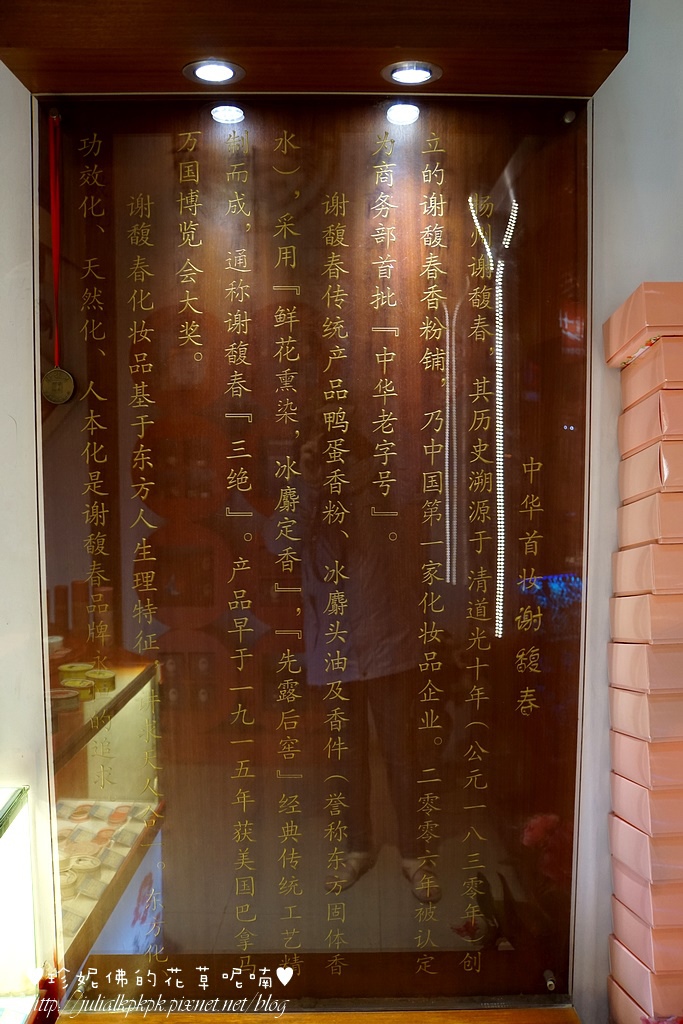 中华首妆谢馥春
扬州谢馥春，其历史溯源于清道光十年（公元一八三零年）创
立的谢馥春香粉铺，乃中国第一家化妆品企业。二零零六年被认定
为商务部首批『中华老字号』。
谢馥春传统产品鸭蛋香粉、冰麝头油及香件（誉称东方固体香
水），采用『鲜花熏染，冰麝定香』，『先露后窖』经典传统工艺精
制而成，通称谢馥春『三绝』。产品早于一九一五年获美国巴拿马
万国博览会大奖。
谢馥春化妆品基于东方人生理特征，。东方化
功效化、天然化、人本化是谢馥春品牌永的追求
♥珍妮佛的花草呢喃♥
http://julialkpkpk.pixnet.net/blog